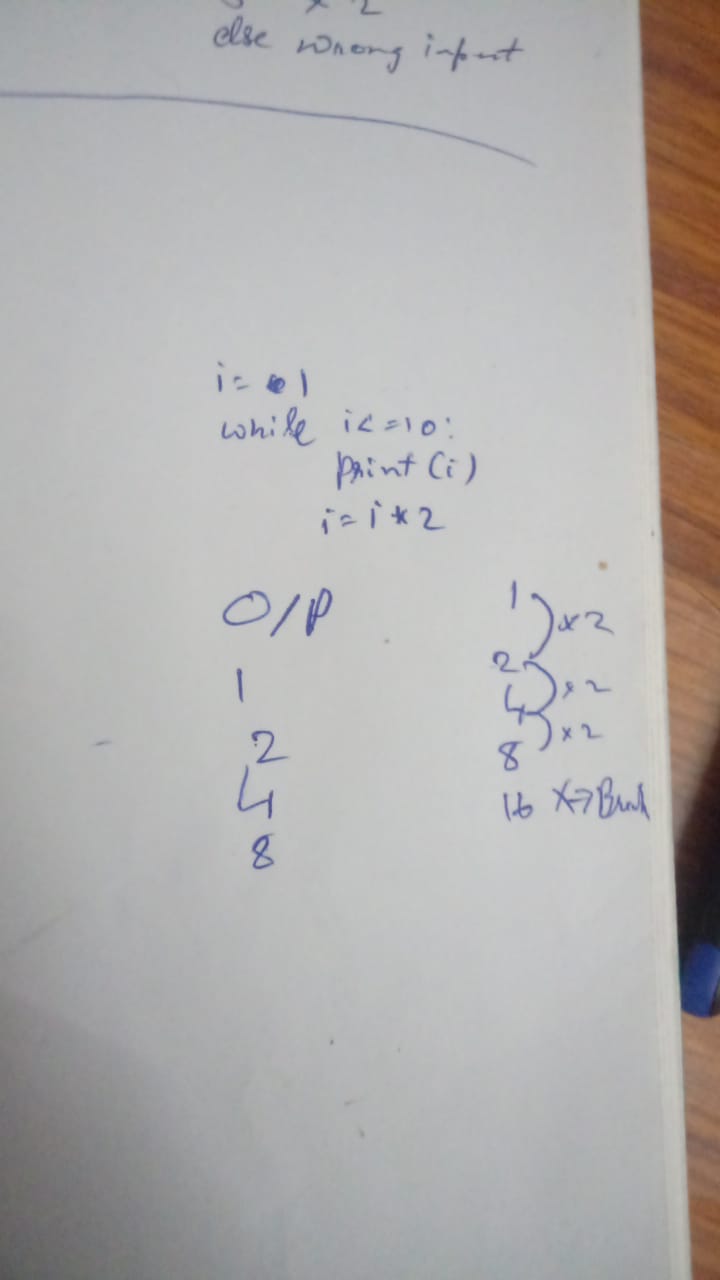 x 2
else wrong input
i= 1
while i<=10:
print(i)
i=i*2
O/P
1
2
4
8
1
x2
2
x2
4
x2
8
16 X→